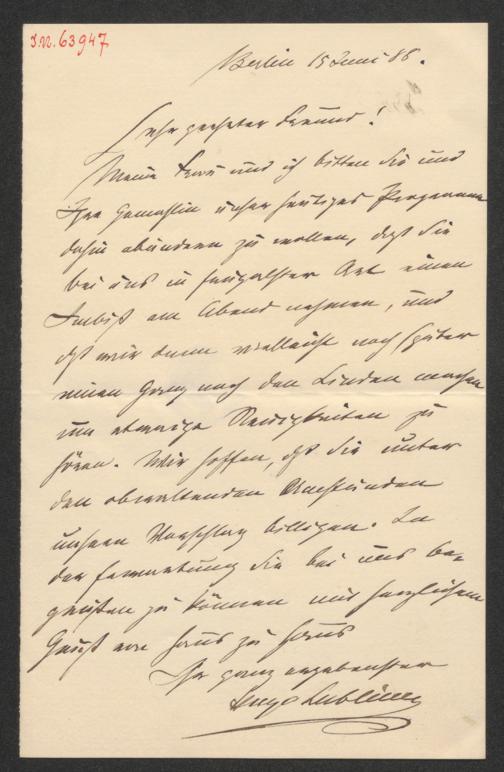 I.N. 63947
Berlin 15 Juni 88.
Sehr geehrter Freund!
Meine Frau und ich bitten Sie und
Ihre Gemahlin unser heutiges Programm
dahin abändern zu wollen, daß Sie
bei uns in Art einen
Imbiß am Abend nehmen, und
daß wir dann vielleicht noch später
einen Gang nach den Linden machen
um etwaige Neuigkeiten zu
hören. Wir hoffen, daß Sie unter
den obwaltenden Umständen
unsern Vorschlag billigen. In
der Erwartung Sie bei uns be-
grüßen zu können mit herzlichem
Gruß von Haus zu Haus
Ihr ganz ergebenster
Hugo Lubliner